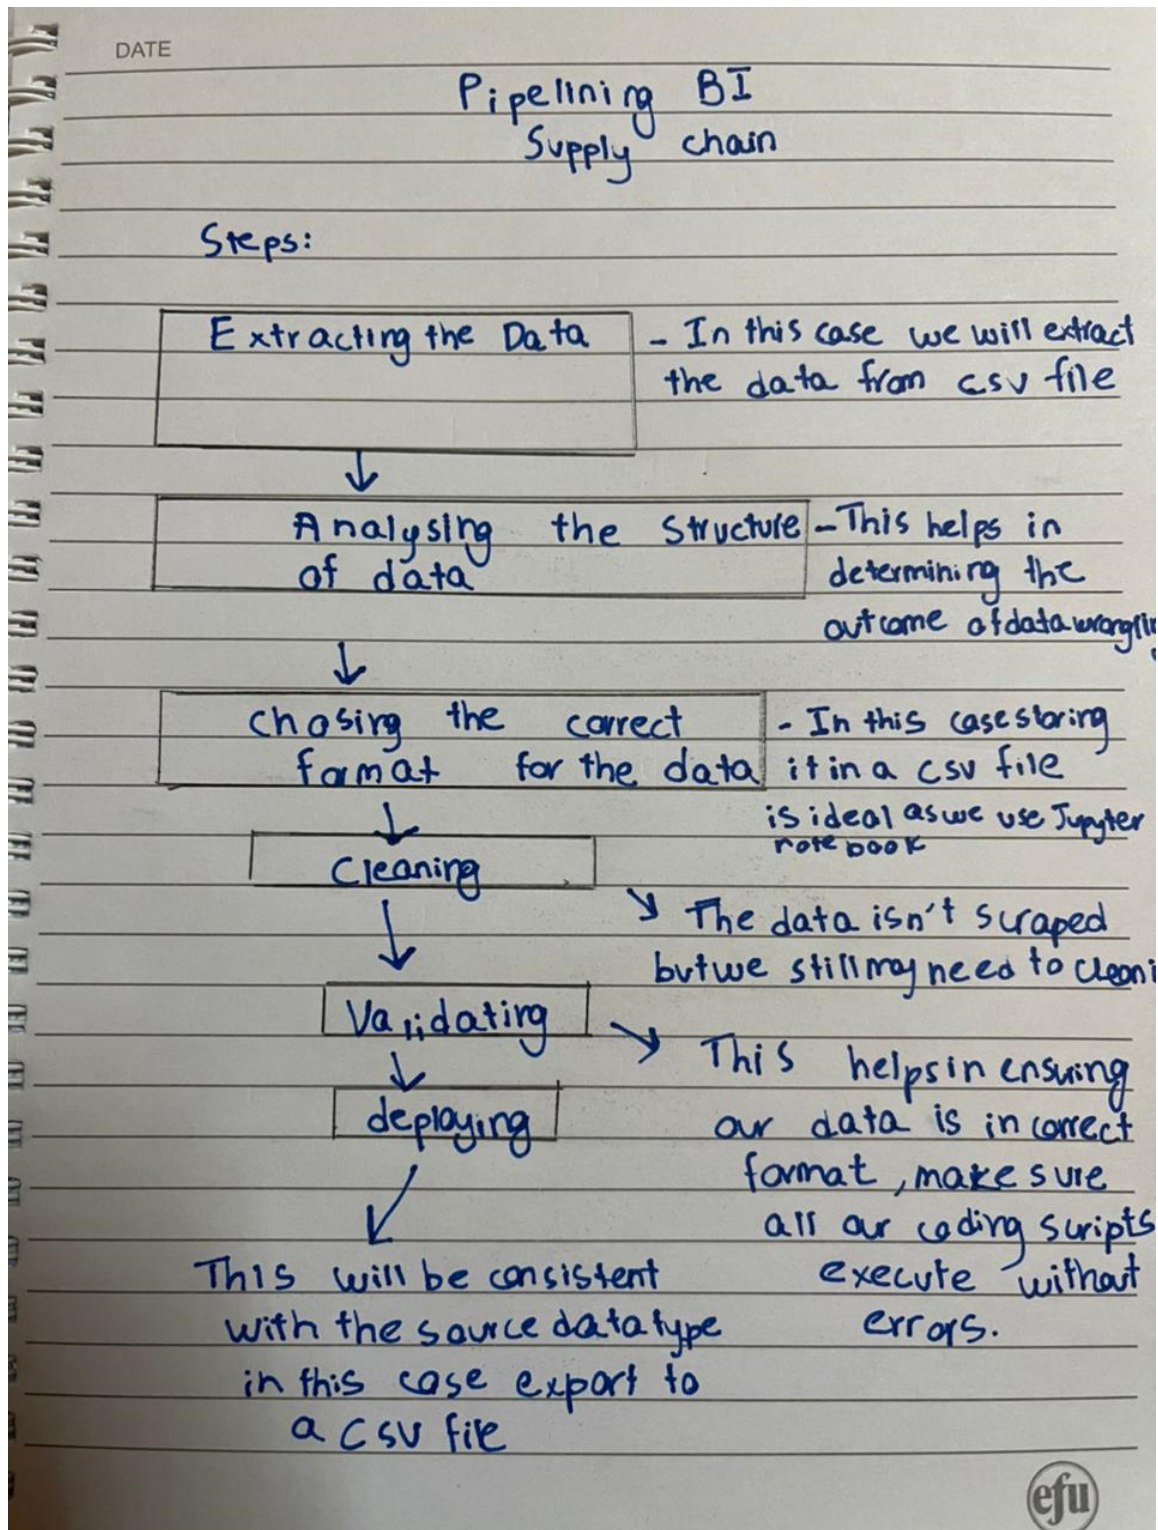 DATE
Pipelining BI
Supply chain
Steps:
Extracting the Data
- In this case we will extract
the data from csv file
Analysing the structure
of data
- This helps in
determining the
outcome of data wrangling
chosing the correct
format for the data
- In this case storing
it in a csv file
is ideal as we use Jupyter
note book
Cleaning
The data isn't scraped
but we still may need to
Validating
This helps in ensuring
our data is in correct
format, make sure
all our coding scripts
execute without
errors.
deploying
This will be consistent
with the source data type
in this case export to
a csv file
efu